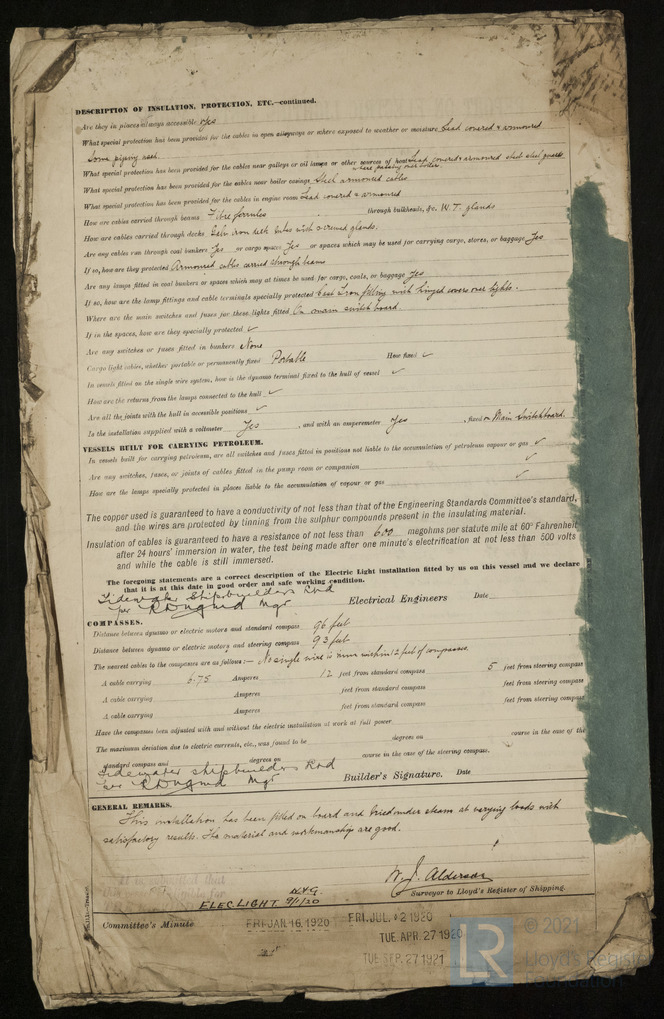 DESCRIPTION OF INSULATION, PROTECTION, ETC.—continued.
Are they in places always accessible Yes
What special protection has been provided for the cables in open alleyways or where exposed to weather or moisture Lead covered & armoured
Some piping used.
What special protection has been provided for the cables near galleys or oil lamps or other sources of heat Lead covered & armoured
What special protection has been provided for the cables near boiler casings Steel armoured cables
What special protection has been provided for the cables in engine room Lead covered & armoured
How are cables carried through beams Fibre ferrules through bulkheads, &c. W.T. glands
How are cables carried through decks Galv iron deck tubes with screwed glands.
Are any cables run through coal bunkers Yes or cargo spaces Yes or spaces which may be used for carrying cargo, stores, or baggage Yes
If so, how are they protected Armoured cables carried through beams
Are any lamps fitted in coal bunkers or spaces which may at times be used for cargo, coals, or baggage Yes
If so, how are the lamp fittings and cable terminals specially protected Cast Iron fitting with hinged covers over lights.
Where are the main switches and fuses for these lights fitted On main switchboard.
If in the spaces, how are they specially protected ✓
Are any switches or fuses fitted in bunkers None
Cargo light cables, whether portable or permanently fixed Portable How fixed ✓
In vessels fitted on the single wire system, how is the dynamo terminal fixed to the hull of vessel ✓
How are the returns from the lamps connected to the hull ✓
Are all the joints with the hull in accessible positions ✓
Is the installation supplied with a voltmeter Yes , and with an amperemeter Yes , fixed on Main Switchboard.
VESSELS BUILT FOR CARRYING PETROLEUM.
In vessels built for carrying petroleum, are all switches and fuses fitted in positions not liable to the accumulation of petroleum vapour or gas ✓
Are any switches, fuses, or joints of cables fitted in the pump room or companion ✓
How are the lamps specially protected in places liable to the accumulation of vapour or gas ✓
The copper used is guaranteed to have a conductivity of not less than that of the Engineering Standards Committee's standard,
and the wires are protected by tinning from the sulphur compounds present in the insulating material.
Insulation of cables is guaranteed to have a resistance of not less than 600 megohms per statute mile at 60° Fahrenheit
after 24 hours' immersion in water, the test being made after one minute's electrification at not less than 500 volts
and while the cable is still immersed.
The foregoing statements are a correct description of the Electric Light installation fitted by us on this vessel and we declare
that it is at this date in good order and safe working condition.
Tidewater Shipbuilders
per Mgr Electrical Engineers Date
COMPASSES.
Distance between dynamo or electric motors and standard compass 96 feet
Distance between dynamo or electric motors and steering compass 93 feet
The nearest cables to the compasses are as follows:— No single wire is run within 12 feet of compasses.
A cable carrying 6.75 Amperes 12 feet from standard compass 5 feet from steering compass
A cable carrying Amperes feet from standard compass feet from steering compass
A cable carrying Amperes feet from standard compass feet from steering compass
Have the compasses been adjusted with and without the electric installation at work at full power
The maximum deviation due to electric currents, etc., was found to be degrees on course in the case of the
standard compass and degrees on course in the case of the steering compass.
Tidewater Shipbuilders
per Mgr Builder's Signature. Date
GENERAL REMARKS.
This installation has been fitted on board and tried under steam at varying loads with
satisfactory results. The material and workmanship are good.
W. J. Alderson
Surveyor to Lloyd's Register of Shipping.
ELEC.LIGHT 9/1/20
Committee's Minute
FRI. JAN 16. 1920
FRI. JUL. 2 1920
TUE. APR. 27 1920
TUE. SEP. 27 1921
LR
© 2021
Lloyd's Register
Foundation